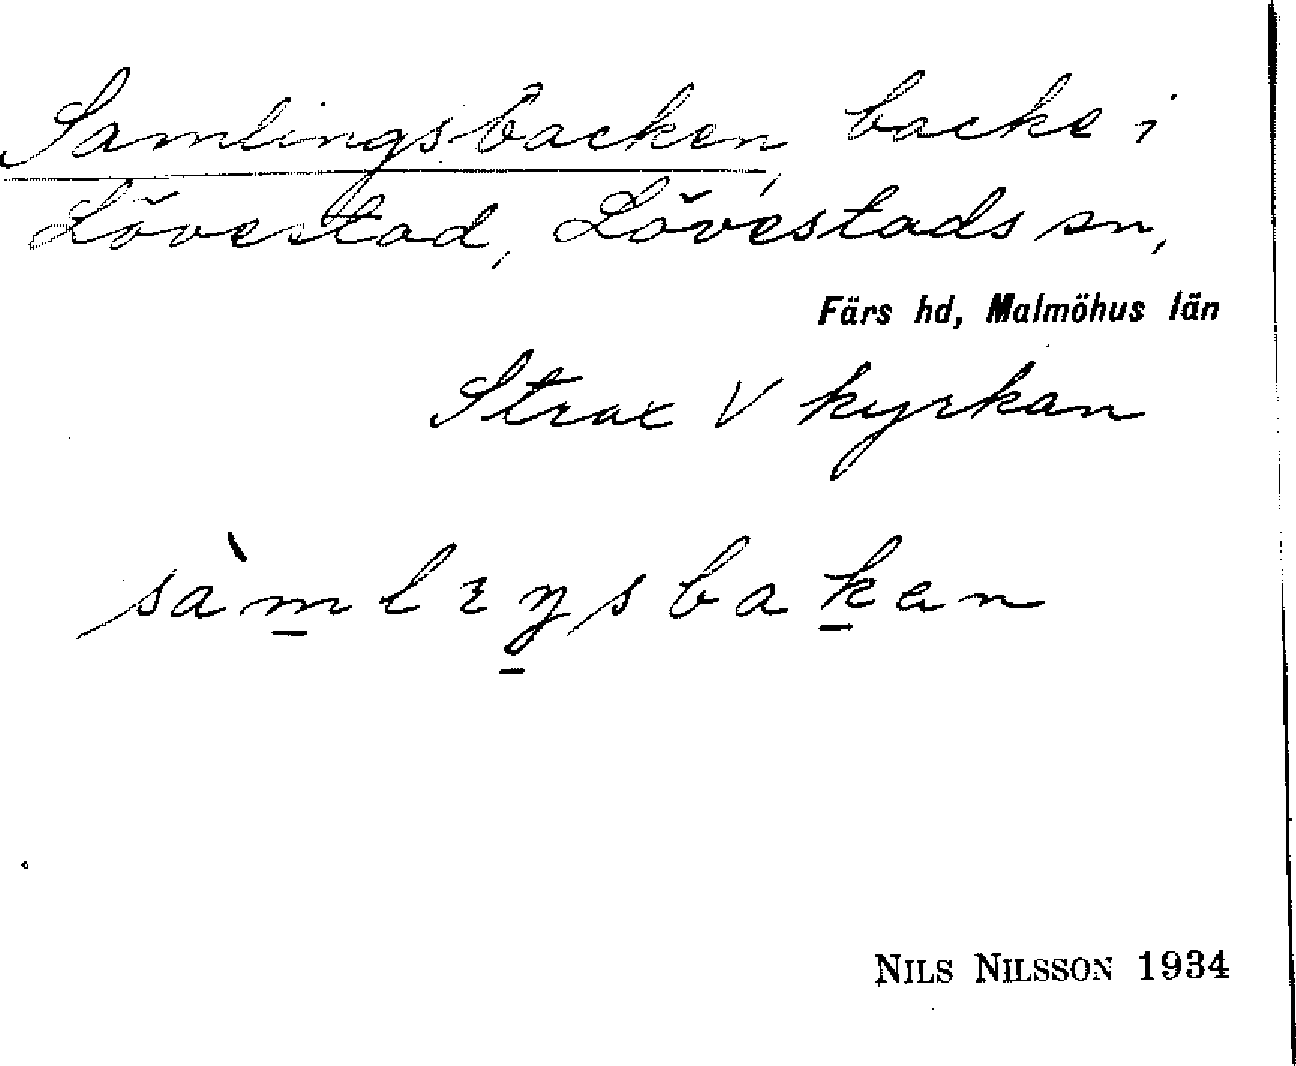 Samlingsbacken, backe i
Lövestad, Lövestads sn,
Färs hd, Malmöhus län
Strax V kyrkan
sàm̲lıŋ̲sbak̲an
NILS NILSSON 1934